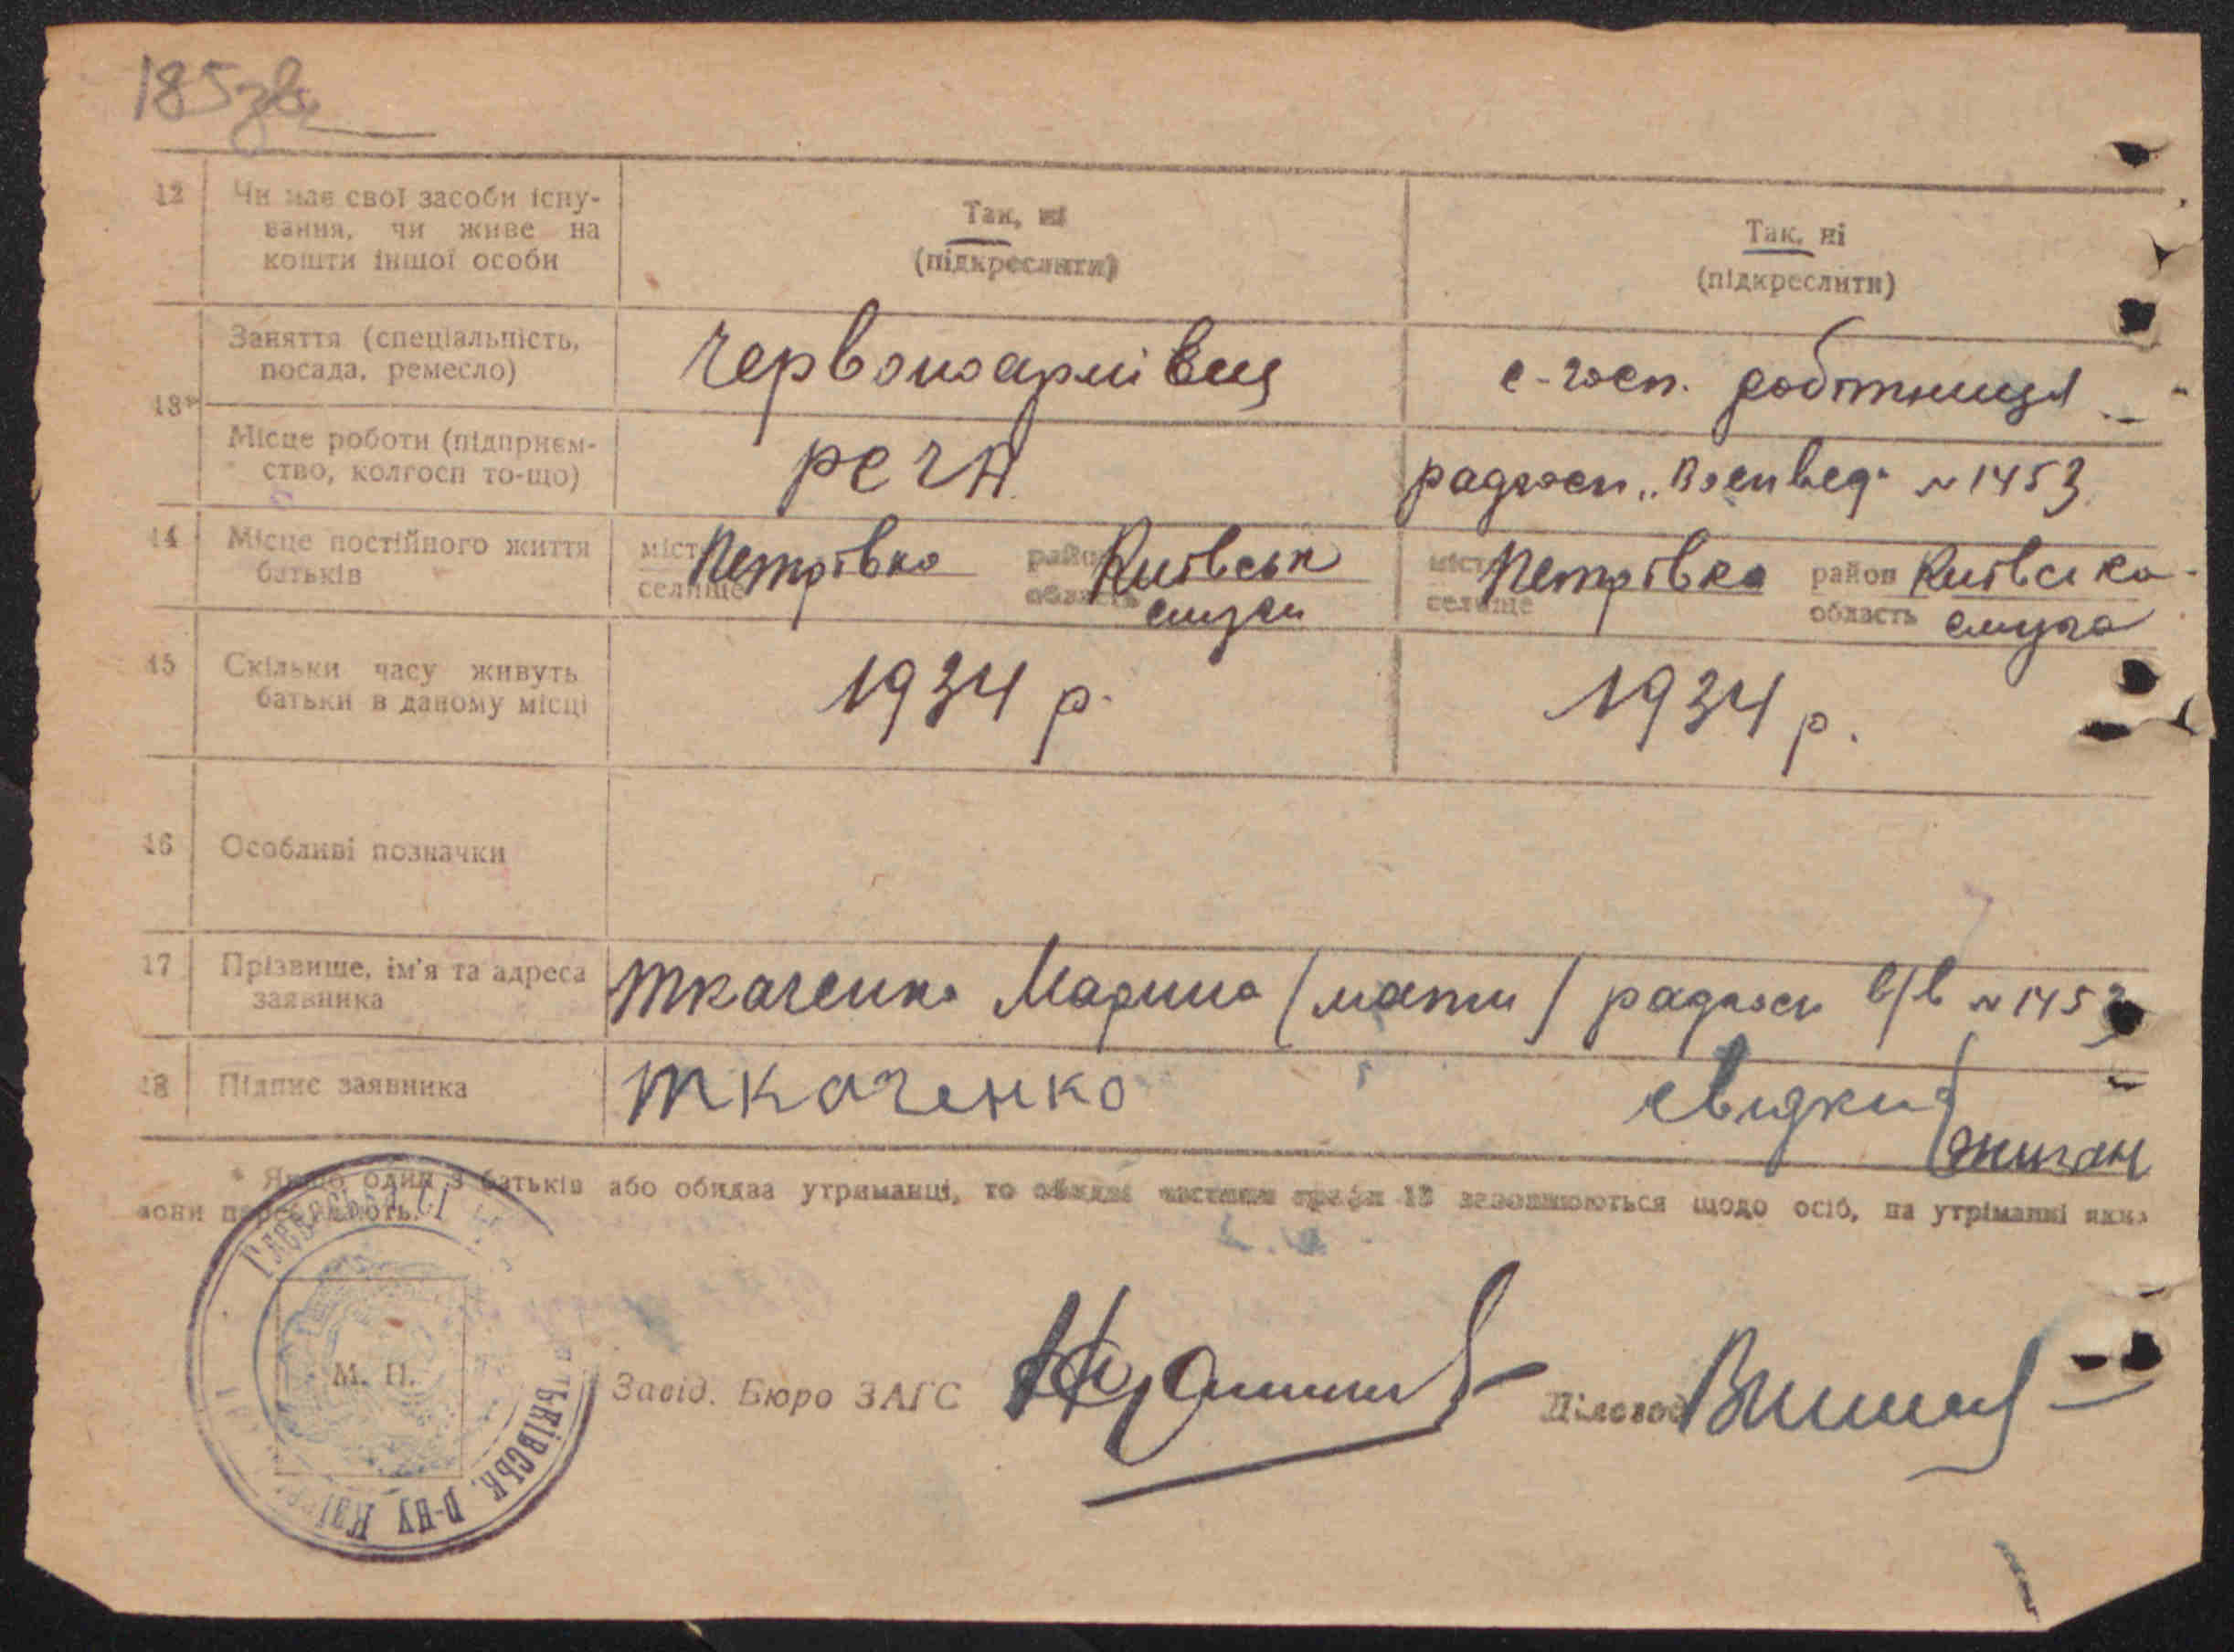 185зв
12 Чи має свої засоби існу-
вання, чи живе на
кошти іншої особи
Так, ні
(підкреслити)
Так, ні
(підкреслити)
13*
Заняття (спеціальність,
посада, ремесло)
Червоноармівец
с-госп. робітниця
Місце роботи (підприєм-
ство, колгосп то-що)
РСЧА
радгосп „Военвед" №1453
14 Місце постійного життя
батьків
місто
селище
Петрівка
район
область
Київськ
смуги
місто
селище
Петрівка
район
область
Київська
смуга
15 Скільки часу живуть
батьки в даному місці
1934 р.
1934 р.
16 Особливі позначки
17 Прізвище, ім'я та адреса
заявника
Ткаченко Марина /мати/ радгосп в/в №1453
18 Підпис заявника
Ткаченко
* Якщо один з батьків або обидва утриманці, то обидві частини графи 13 заповнюються щодо осіб, на утріманні яких
вони перебувають.
М. П.
Завід. Бюро ЗАГС
Діловод